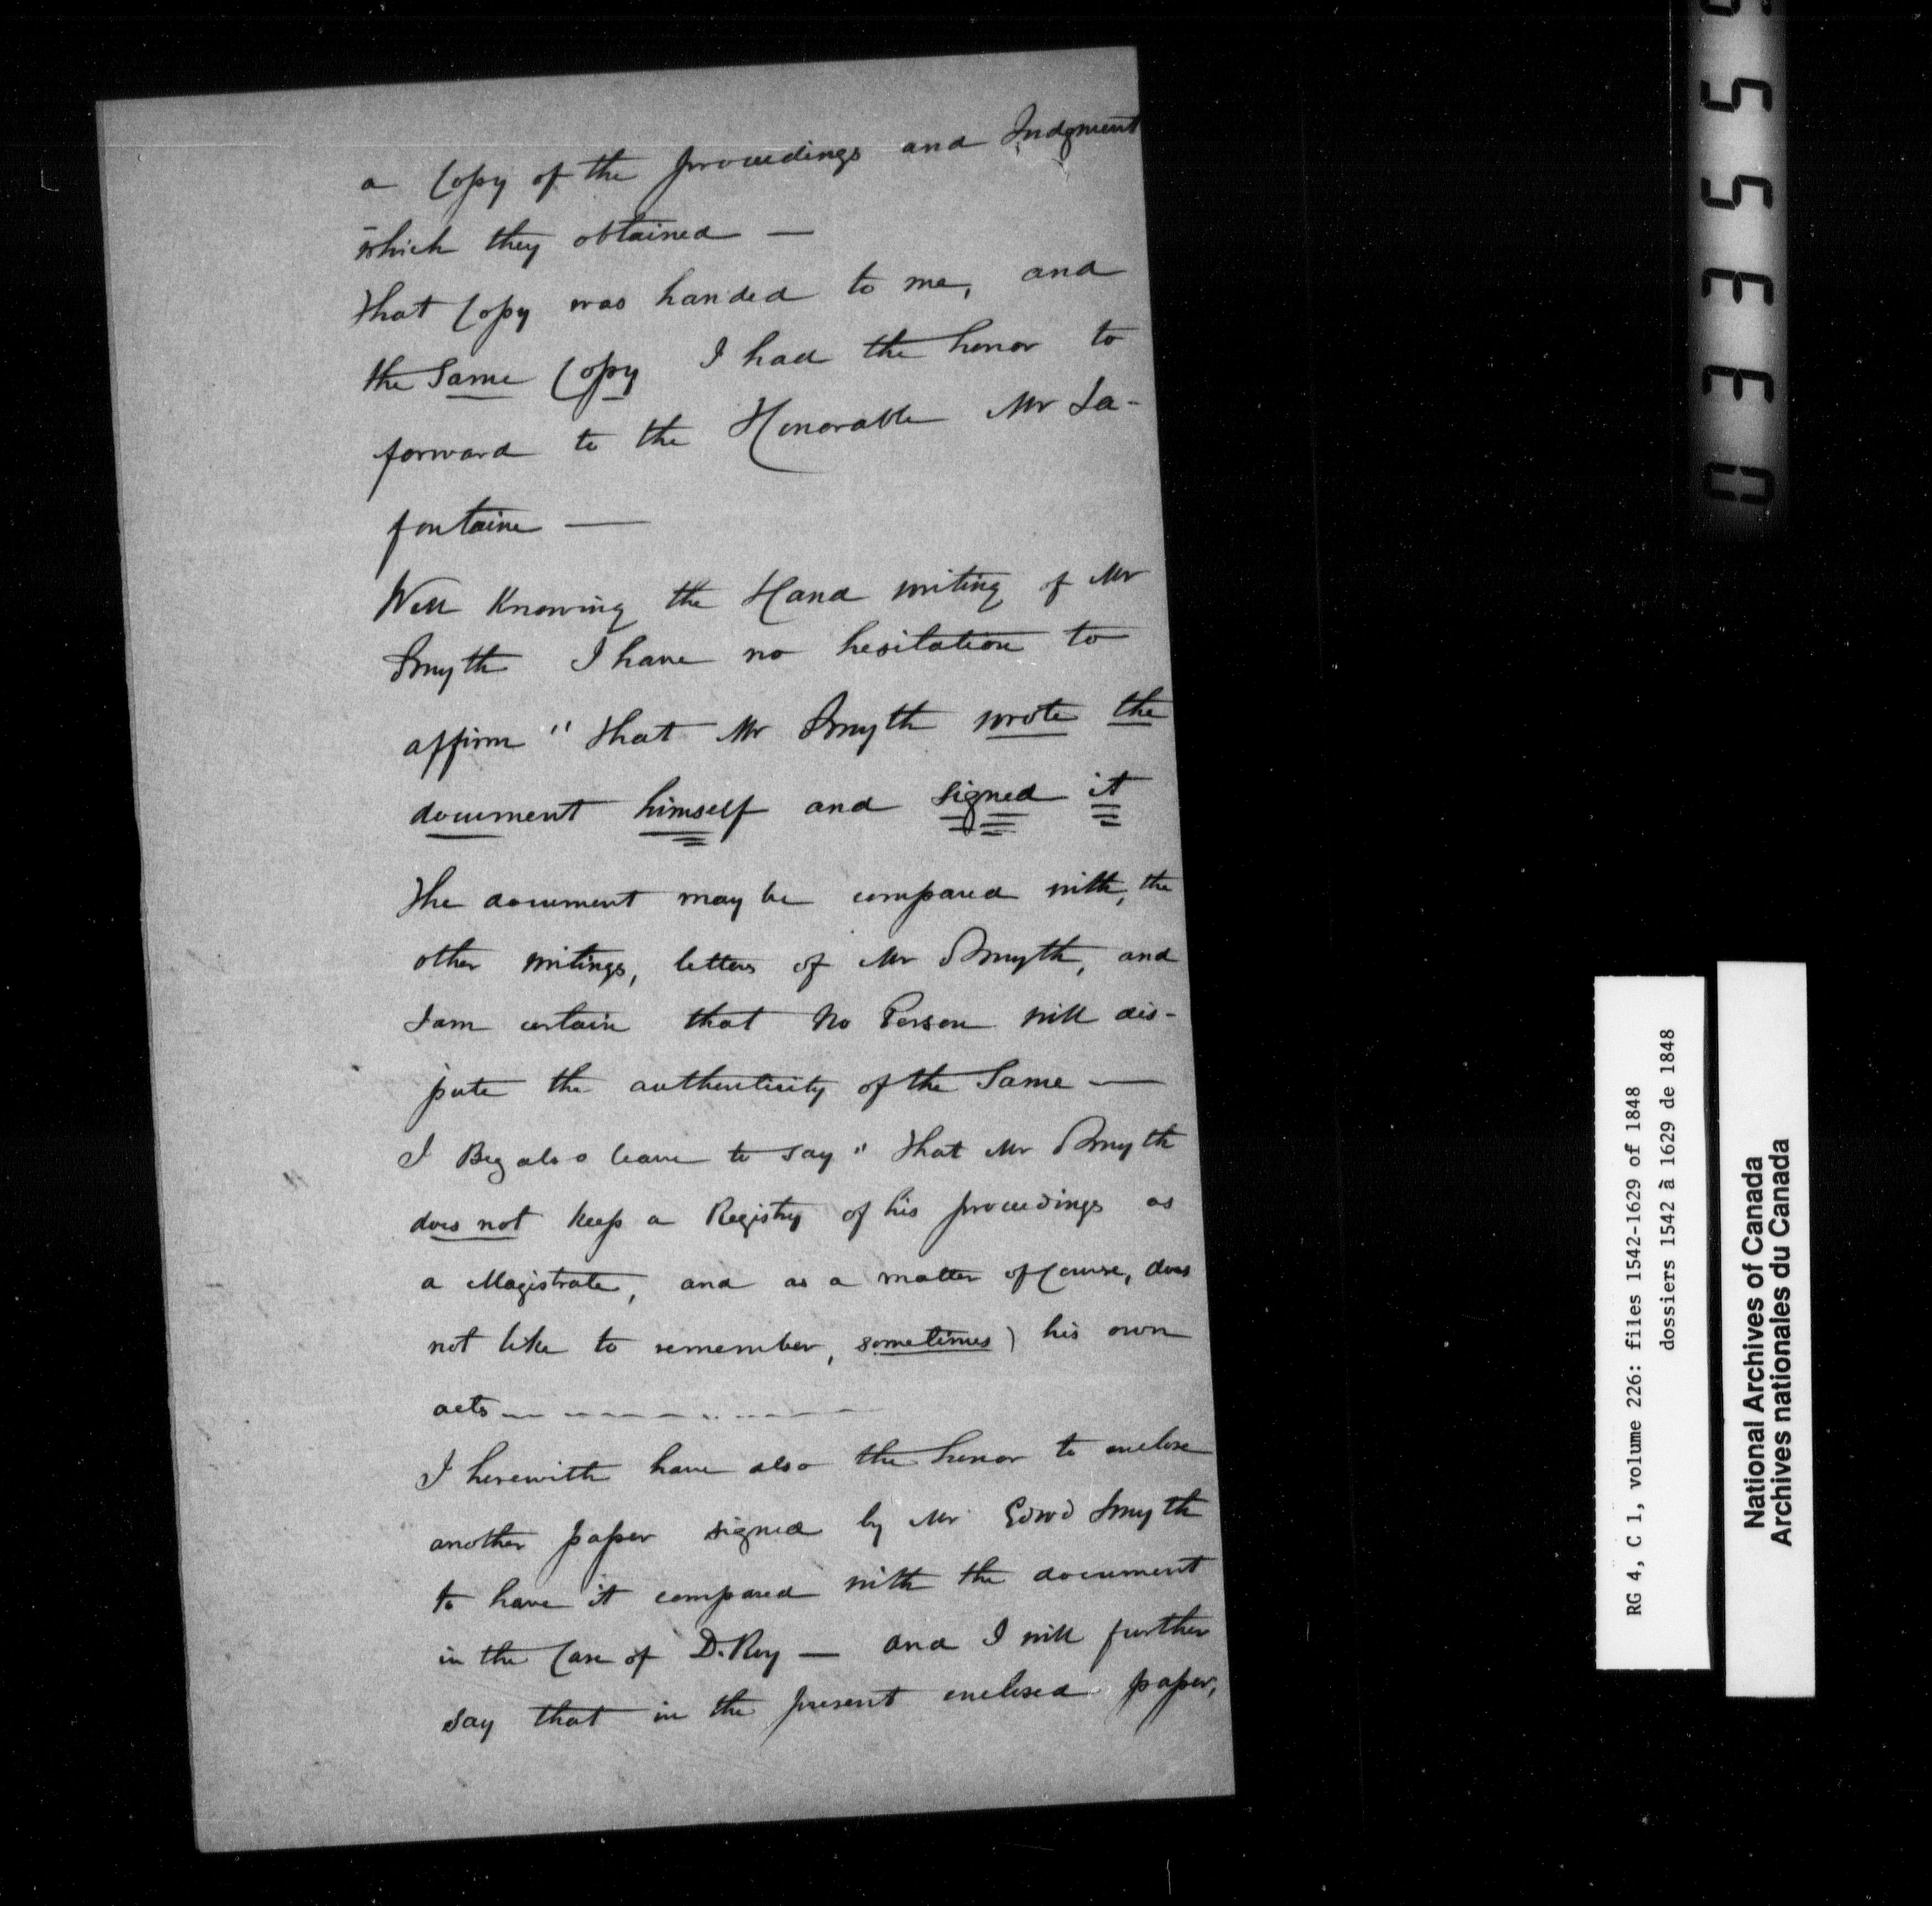 a Copy of the proceedings and Judgment
which they obtained —
that Copy was handed to me, and
the Same Copy I had the honor to
forward to the Honorable Mr La-
fontaine —
Well Knowing the Hand writing of Mr
Smyth I have no hesitation to
affirm " that Mr Smyth wrote the
document himself and signed it
the document may be compared with, the
other writings, letters of Mr Smyth, and
I am certain that No Person will dis-
pute the authenticity of the Same —
I Beg also leave to say " that Mr Smyth
does not keep a Registry of his proceedings as
a Magistrate, and as a matter of Course, does
not like to remember, sometimes) his own
acts
I herewith have also the honor to enclose
another paper signed by Mr Edwd Smyth
to have it compared with the document
in the Case of D. Roy — and I will further
say that in the present enclosed paper,
033555
RG 4, C 1, volume 226: files 1542-1629 of 1848
dossiers 1542 à 1629 de 1848
National Archives of Canada
Archives nationales du Canada